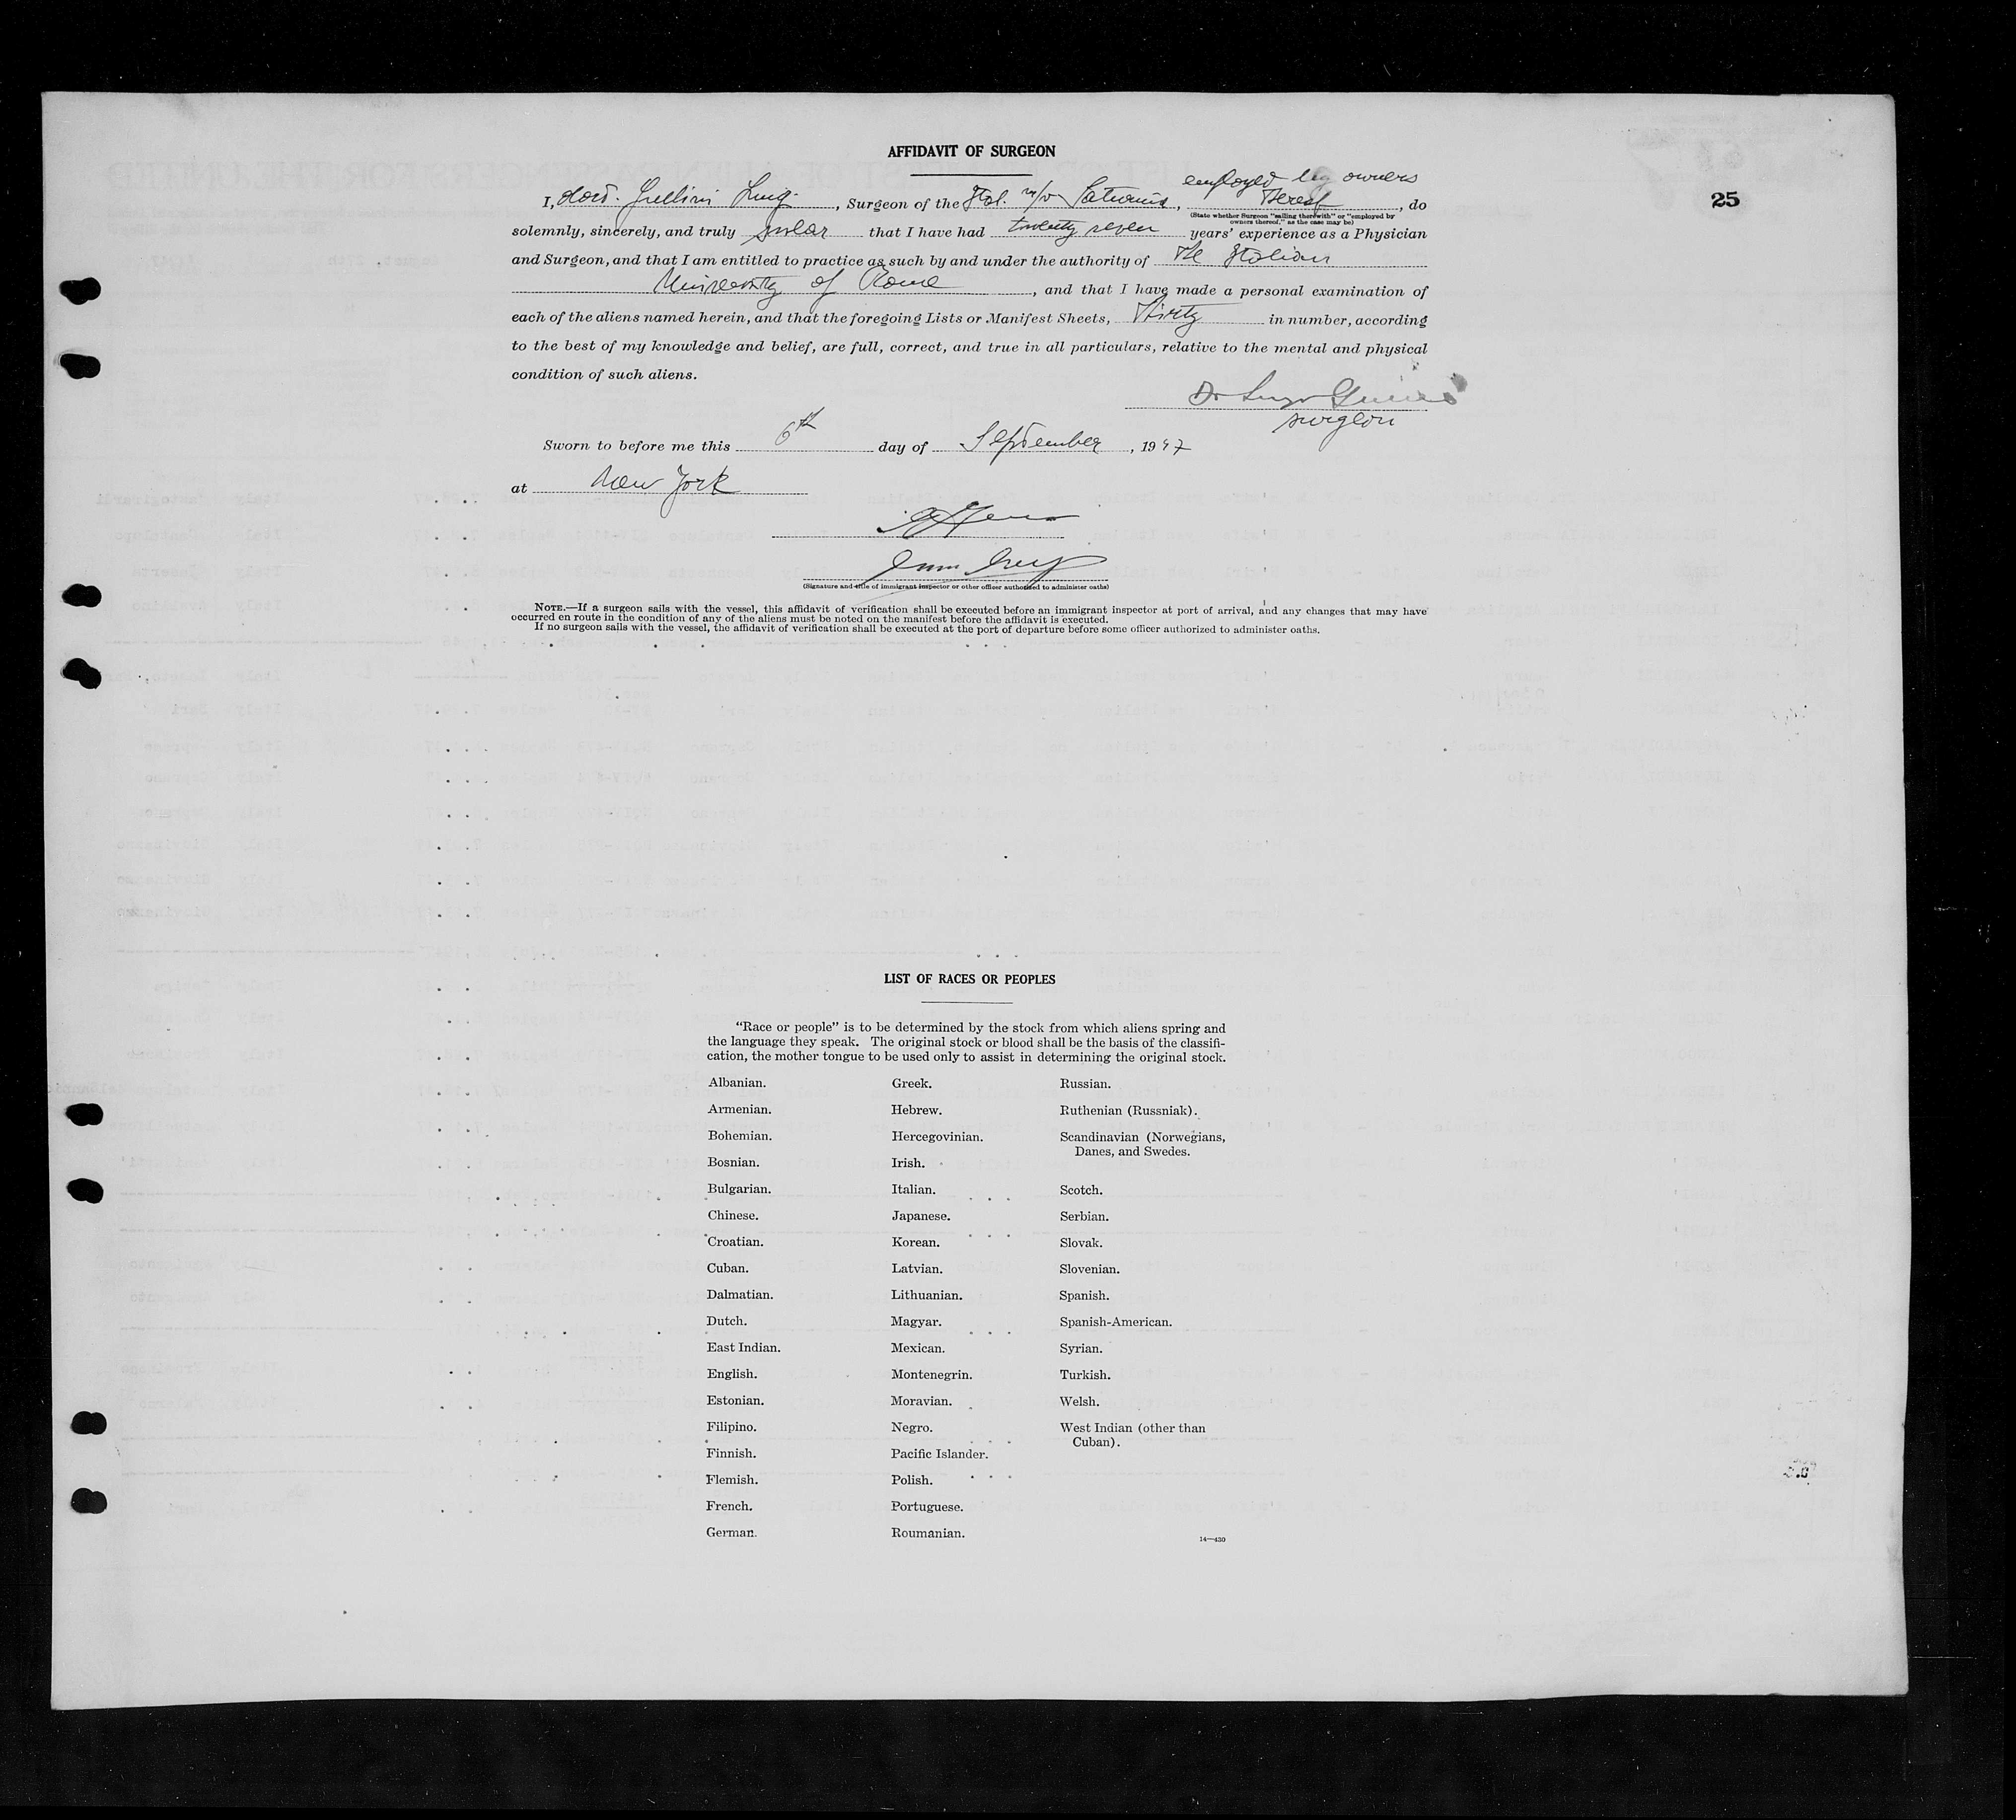 AFFIDAVIT OF SURGEON
25
employed by owners
I, , Surgeon of the Ital. m/v Saturnia, thereof, do
(State whether Surgeon "sailing therewith" or "employed by
owners thereof," as the case may be)
solemnly, sincerely, and truly swear that I have had twenty seven years' experience as a Physician
and Surgeon, and that I am entitled to practice as such by and under the authority of The Italian
University of Rome, and that I have made a personal examination of
each of the aliens named herein, and that the foregoing Lists or Manifest Sheets, Thirty in number, according
to the best of my knowledge and belief, are full, correct, and true in all particulars, relative to the mental and physical
condition of such aliens.
Dr
surgeon
Sworn to before me this 6th day of September, 1947
at New York
(Signature and title of immigrant inspector or other officer authorized to administer oaths)
NOTE.—If a surgeon sails with the vessel, this affidavit of verification shall be executed before an immigrant inspector at port of arrival, and any changes that may have
occurred en route in the condition of any of the aliens must be noted on the manifest before the affidavit is executed.
If no surgeon sails with the vessel, the affidavit of verification shall be executed at the port of departure before some officer authorized to administer oaths.
LIST OF RACES OR PEOPLES
"Race or people" is to be determined by the stock from which aliens spring and
the language they speak. The original stock or blood shall be the basis of the classifi-
cation, the mother tongue to be used only to assist in determining the original stock.
Albanian.
Armenian.
Bohemian.
Bosnian.
Bulgarian.
Chinese.
Croatian.
Cuban.
Dalmatian.
Dutch.
East Indian.
English.
Estonian.
Filipino.
Finnish.
Flemish.
French.
German.
Greek.
Hebrew.
Hercegovinian.
Irish.
Italian.
Japanese.
Korean.
Latvian.
Lithuanian.
Magyar.
Mexican.
Montenegrin.
Moravian.
Negro.
Pacific Islander.
Polish.
Portuguese.
Roumanian.
Russian.
Ruthenian (Russniak).
Scandinavian (Norwegians,
Danes, and Swedes.
Scotch.
Serbian.
Slovak.
Slovenian.
Spanish.
Spanish-American.
Syrian.
Turkish.
Welsh.
West Indian (other than
Cuban).
14—430